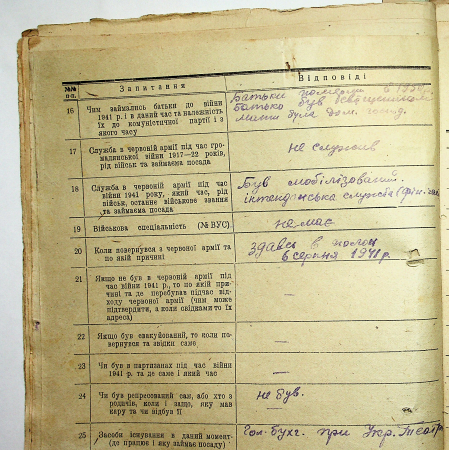 №№ п-п.
Запитання
Відповіді
16 Чим займались батьки до війни
1941 р. і в даний час та належність
їх до комуністичної партії і з
якого часу
Батьки померли в 1930
Батько був священиком
мати була дом. госпд.
17 Служба в червоній армії під час гро-
мадянської війни 1917—22 років,
рід військ та займаєма посада
не служив
18 Служба в червоній армії під час
війни 1941 року, який час, рід
військ, останнє військове звання
та займаєма посада
Був мобілізований.
інтендантська служба
19 Військова спеціальність (№ ВУС)
немає
20 Коли повернувся з червоної армії та
по якій причині
здався в полон
6 серпня 1941 р.
21 Якщо не був в червоній армії під
час війни 1941 р., то по якій при-
чині та де перебував підчас від-
ходу червоної армії (чим може
підтвердити, а коли свідками то їх
адреса)
—
22 Якщо був евакуйований, то коли по-
вернувся та звідки саме
—
23 Чи був в партизанах під час війни
1941 р. та де саме і який час
—
24 Чи був репресований сам, або хто з
родичів, коли і защо, яку мав
кару та чи відбув її
не був.
—
25 Засоби існування в даний момент
(де працює і яку займає посаду)
Гол. бухг. при Укр. Театрі